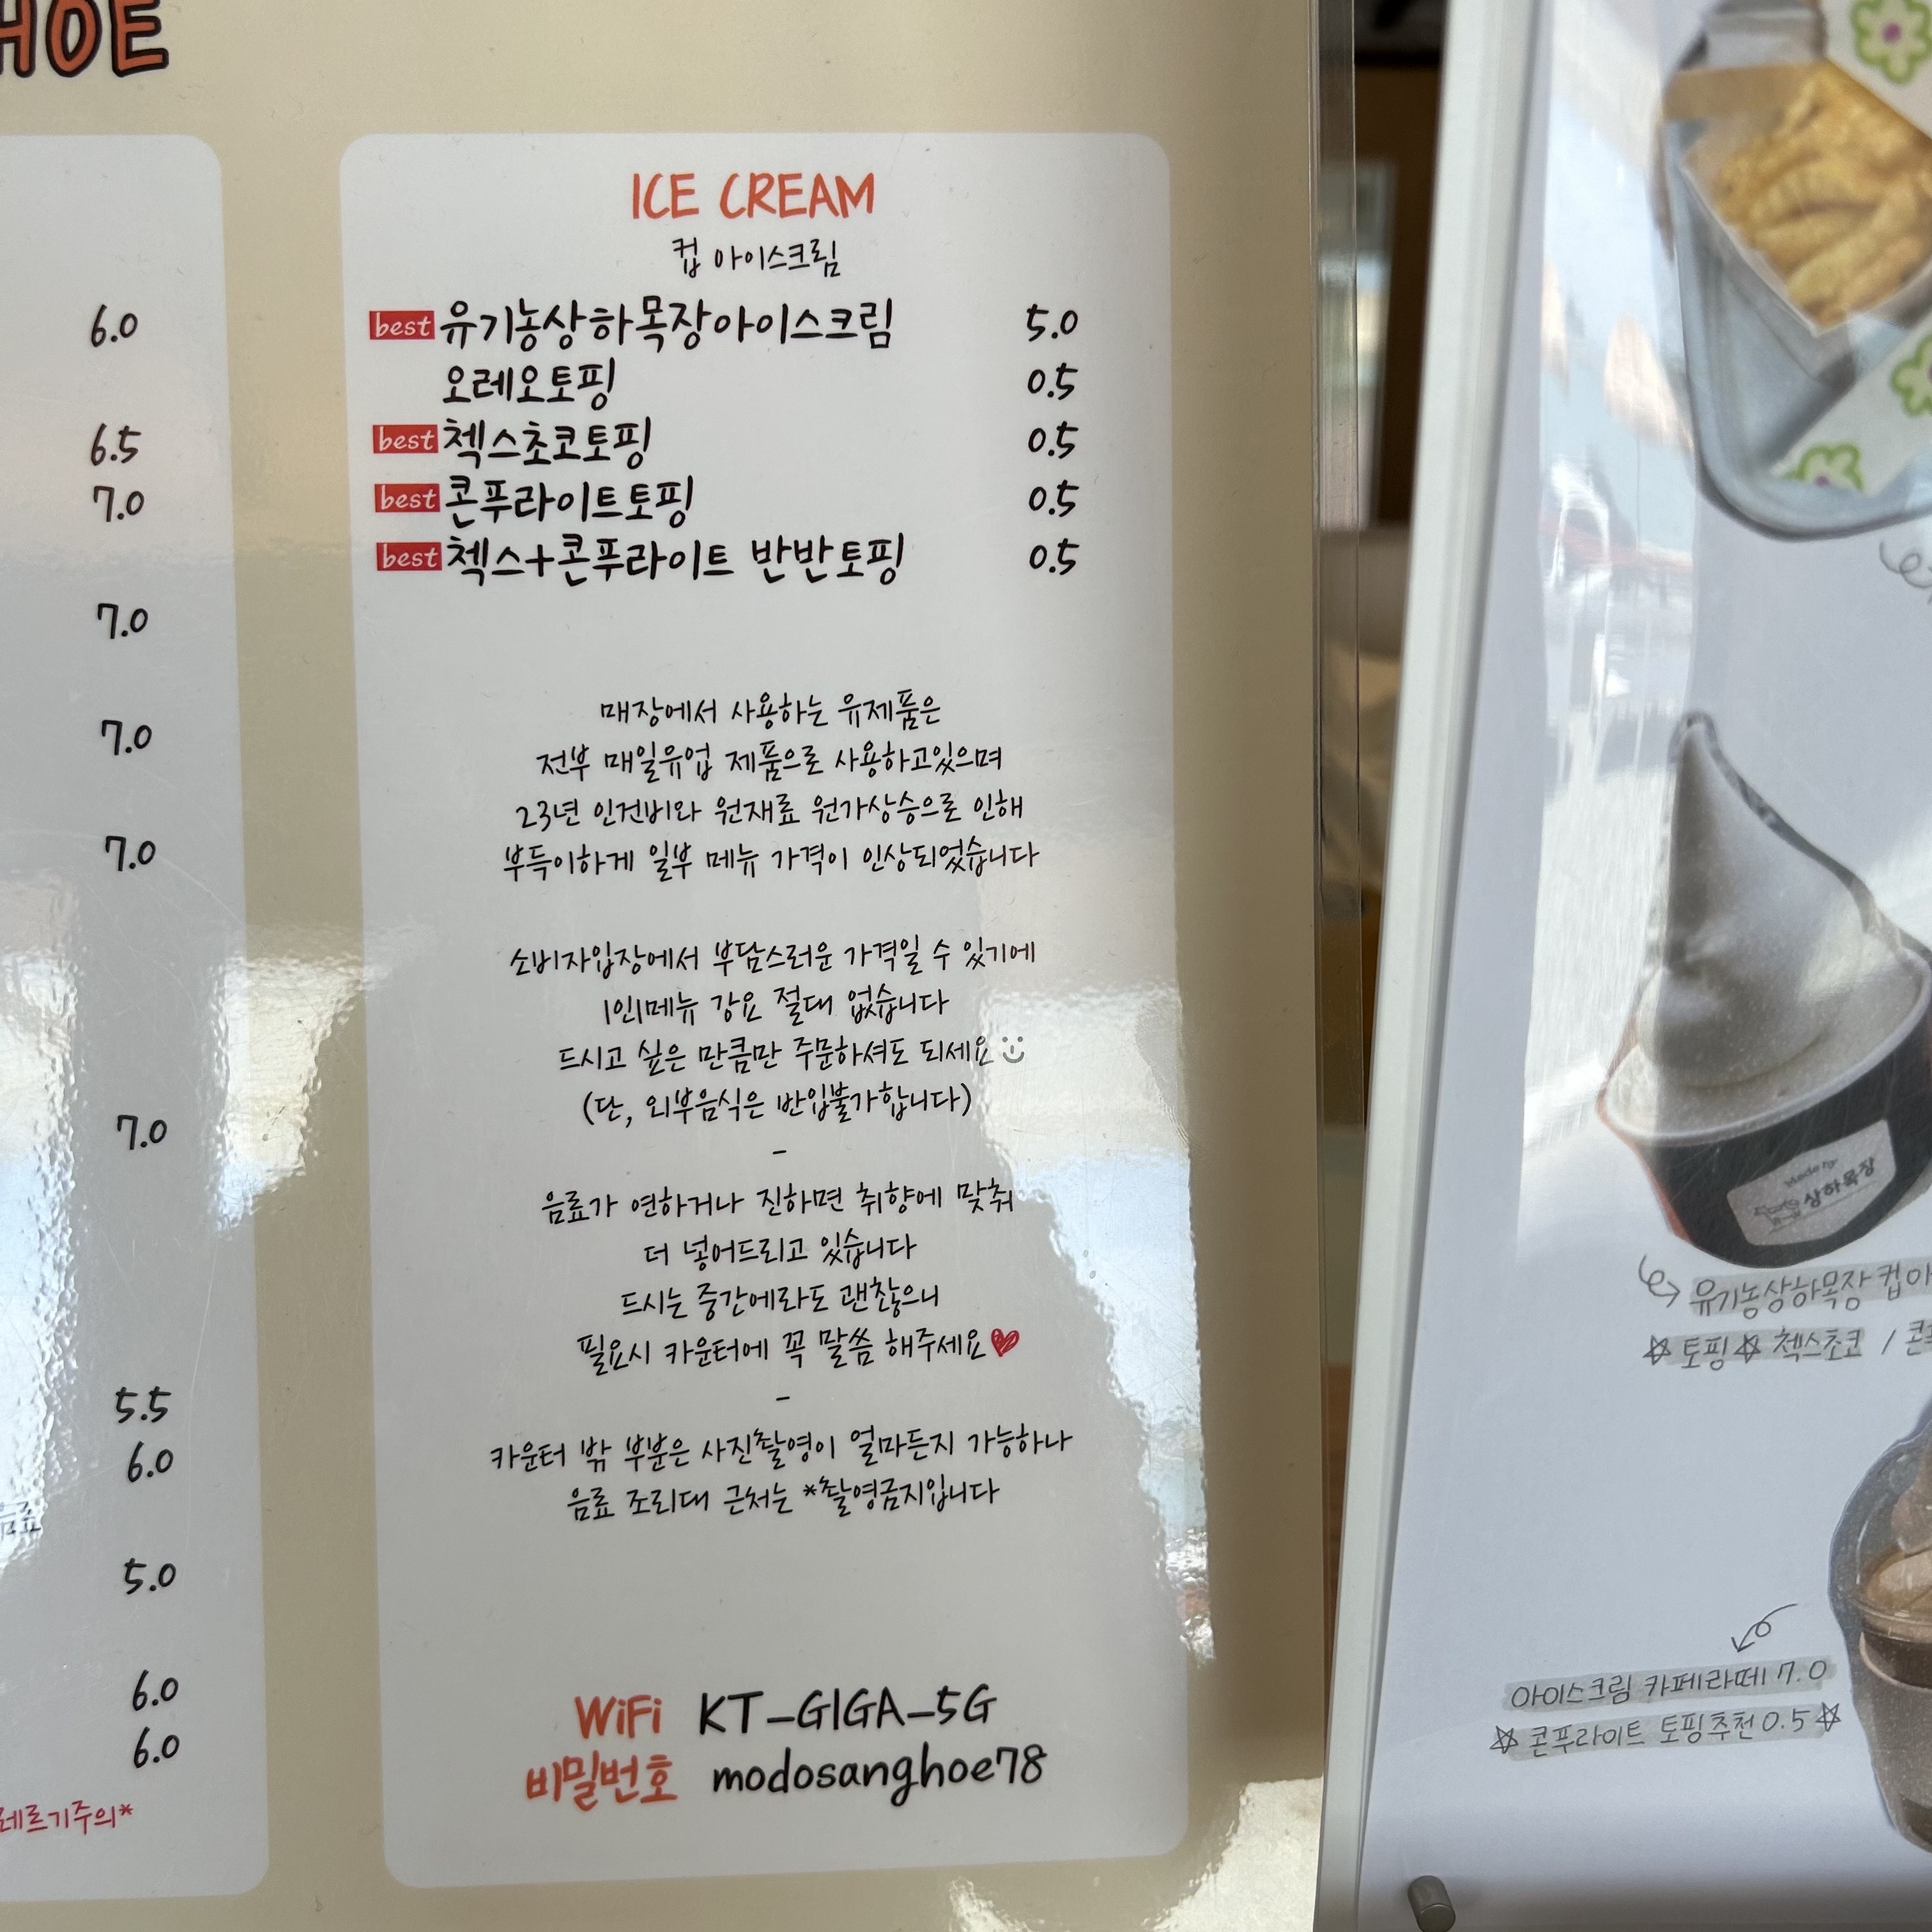 HOE
6.0
6.5
7.0
7.0
7.0
7.0
7.0
5.5
6.0
음료
5.0
6.0
6.0
레르기주의*
ICE CREAM
컵 아이스크림
best 유기농상하목장아이스크림 5.0
오레오토핑 0.5
best 첵스초코토핑 0.5
best 콘푸라이트토핑 0.5
best 첵스+콘푸라이트 반반토핑 0.5
매장에서 사용하는 유제품은
전부 매일유업 제품으로 사용하고있으며
23년 인건비와 원재료 원가상승으로 인해
부득이하게 일부 메뉴 가격이 인상되었습니다
소비자입장에서 부담스러운 가격일 수 있기에
1인1메뉴 강요 절대 없습니다
드시고 싶은 만큼만 주문하셔도 되세요
(단, 외부음식은 반입불가합니다)
-
음료가 연하거나 진하면 취향에 맞춰
더 넣어드리고 있습니다
드시는 중간에라도 괜찮으니
필요시 카운터에 꼭 말씀 해주세요♥
-
카운터 밖 부분은 사진촬영이 얼마든지 가능하나
음료 조리대 근처는 *촬영금지입니다
WiFi KT_GIGA_5G
비밀번호 modosanghoe78
Made by
상하목장
유기농상하목장 컵아
☆ 토핑 ☆ 첵스초코 / 콘
아이스크림 카페라떼 7.0
☆ 콘푸라이트 토핑추천 0.5 ☆